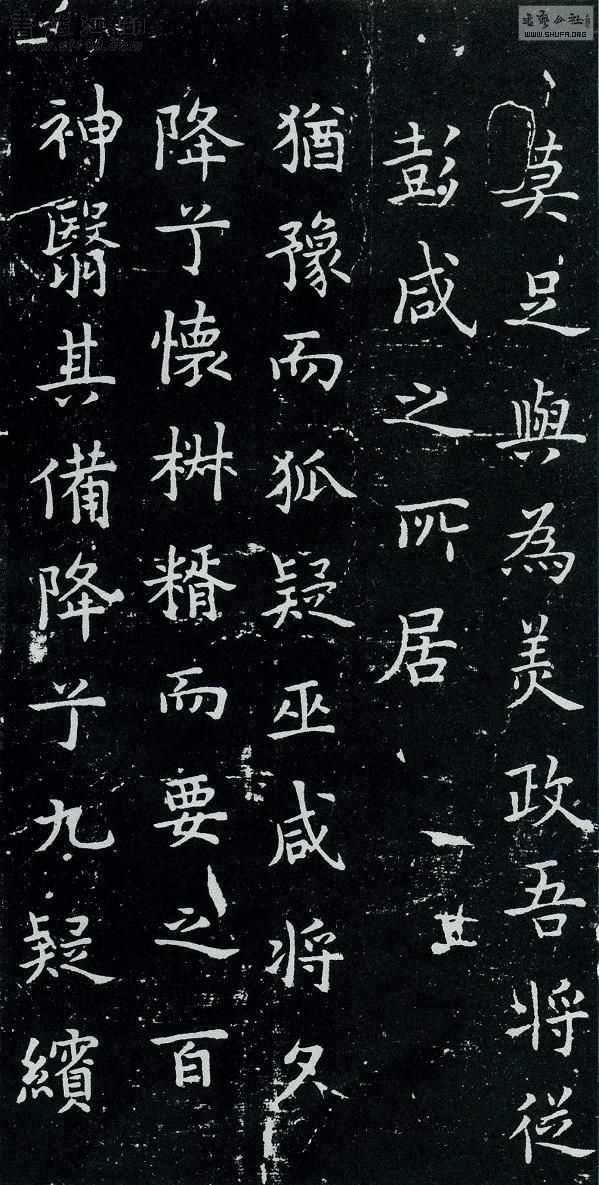 莫足與為美政吾将從
彭咸之所居
其
猶豫而狐疑巫咸将夕
降兮懷椒糈而要之百
神翳其備降兮九疑繽
書法江湖
www.sf108.com
書藝公社
WWW.SHUFA.ORG